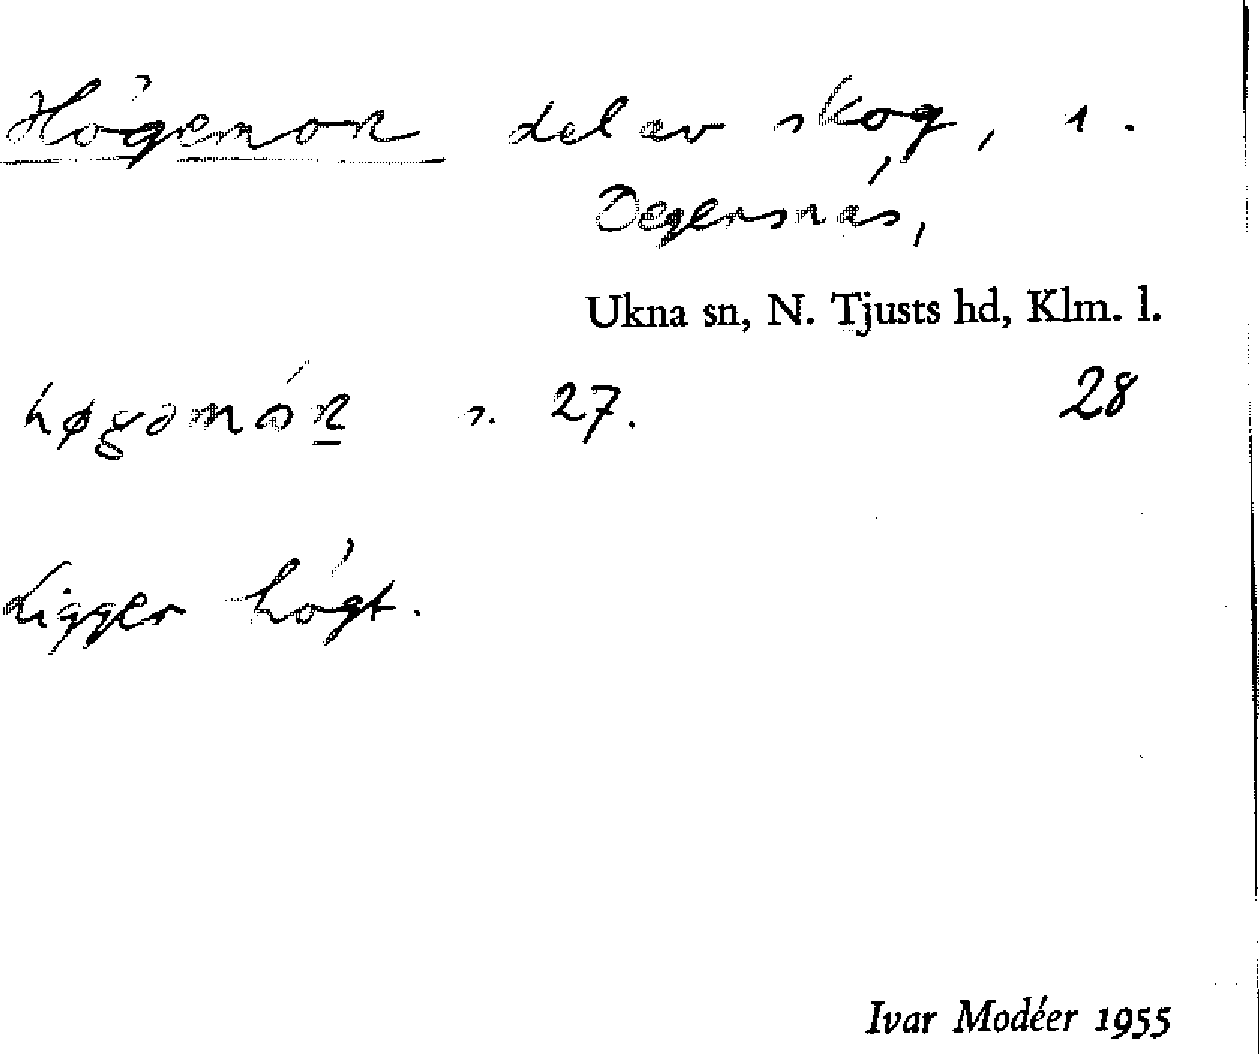 Högemon del av skog, 1.
Degersnäs,
Ukna sn, N. Tjusts hd, Klm. l.
høgəmón s. 27. 28
Ligger högt.
Ivar Modéer 1955